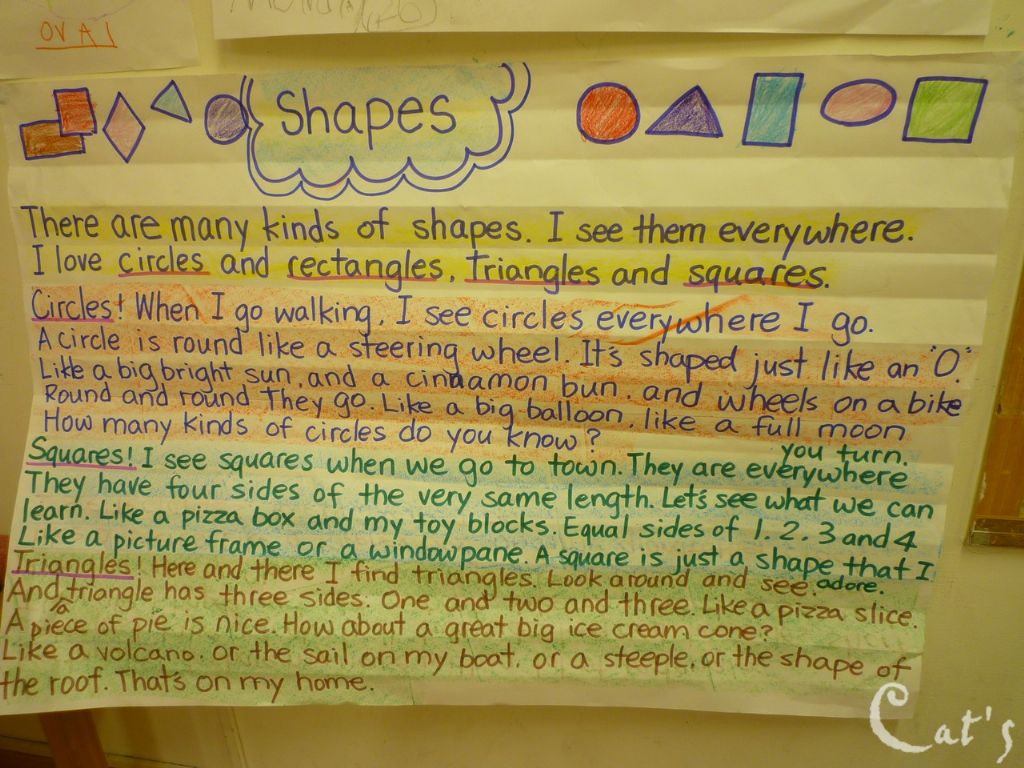 OVAL
Shapes
There are many kinds of shapes. I see them everywhere.
I love circles and rectangles, triangles and squares.
Circles! When I go walking, I see circles everywhere I go.
A circle is round like a steering wheel. It's shaped just like an "O".
Like a big bright sun, and a cinnamon bun, and wheels on a bike
Round and round They go. Like a big balloon, like a full moon
How many kinds of circles do you know?
you turn.
Squares! I see squares when we go to town. They are everywhere
They have four sides of the very same length. Let's see what we can
learn. Like a pizza box and my toy blocks. Equal sides of 1, 2, 3 and 4
Like a picture frame or a windowpane. A square is just a shape that I
adore.
Triangles! Here and there I find triangles. Look around and see.
And a triangle has three sides. One and two and three. Like a pizza slice.
A piece of pie is nice. How about a great big ice cream cone?
Like a volcano, or the sail on my boat, or a steeple, or the shape of
the roof. That's on my home.
Cat's